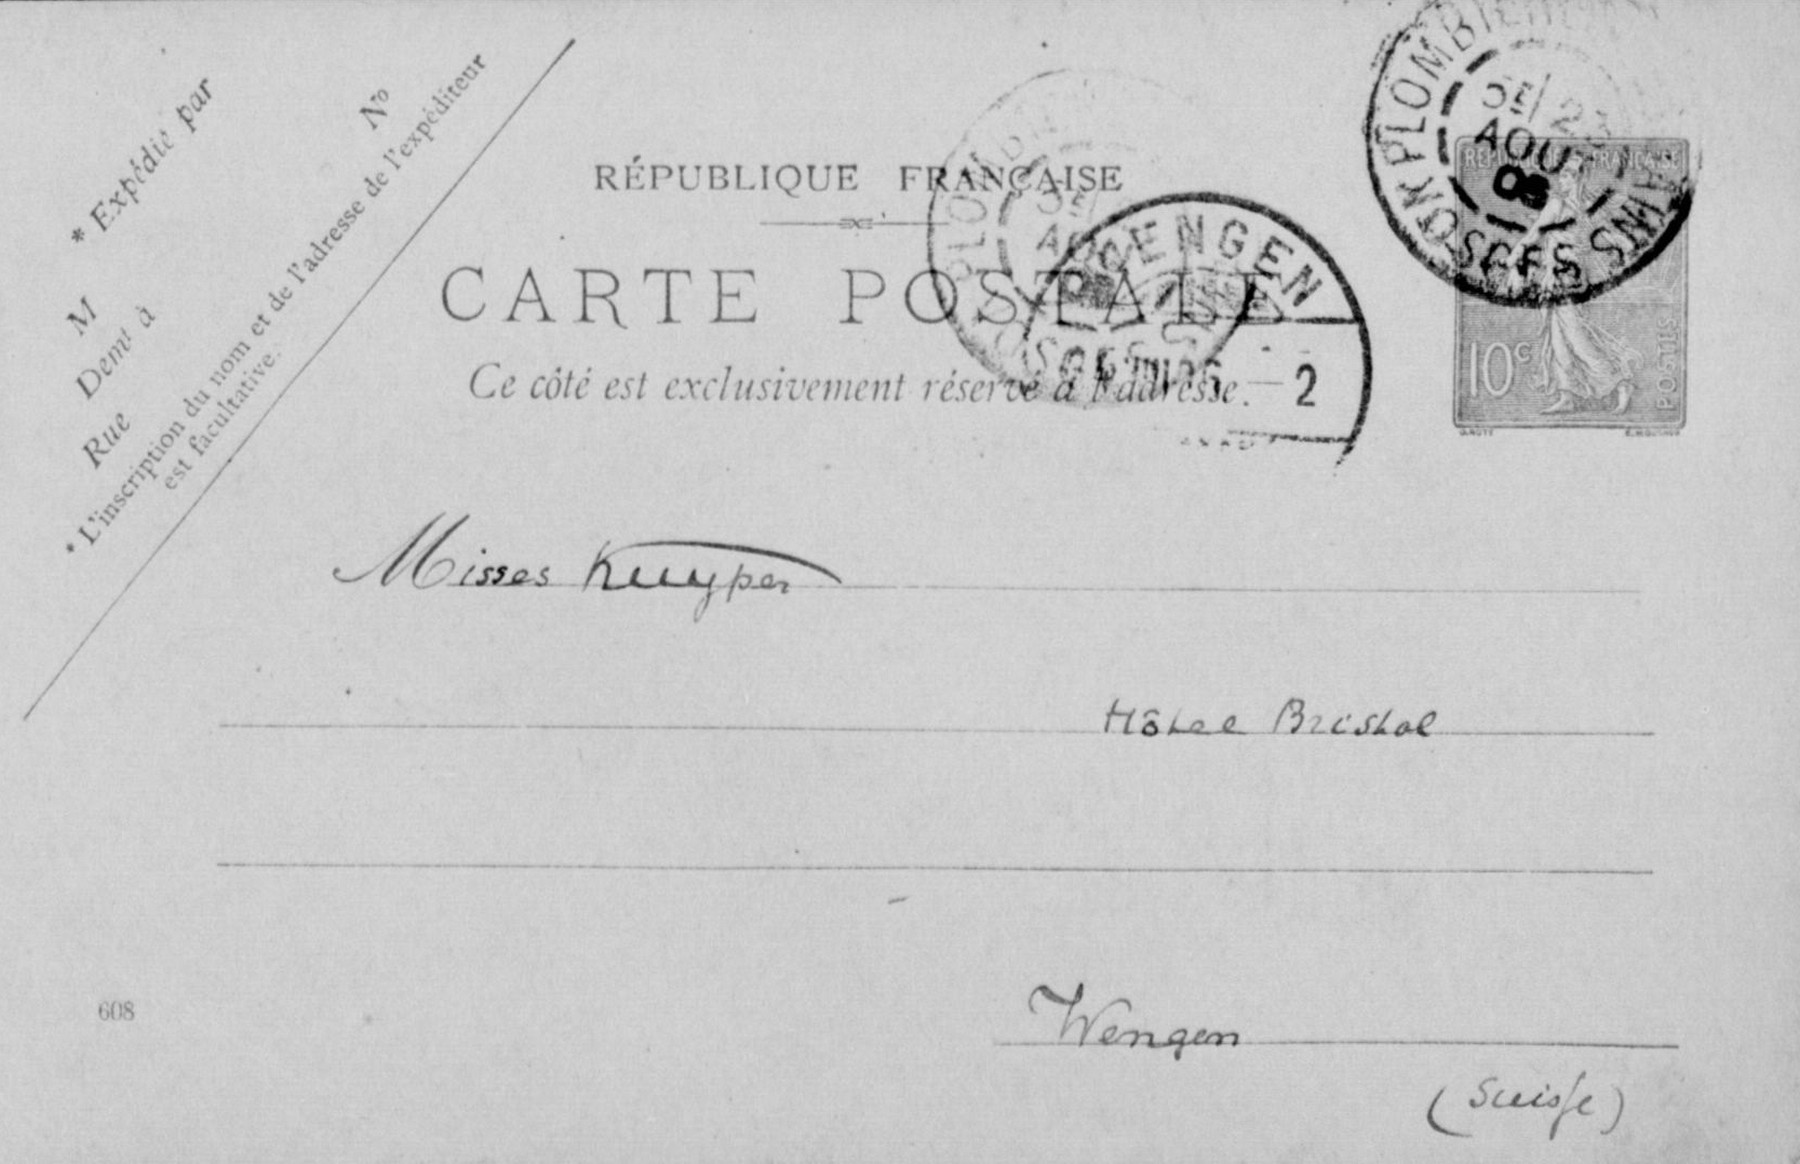 * Expédié par
M
Demt à
Rue
No
* L'inscription du nom et de l'adresse de l'expéditeur
est facultative.
RÉPUBLIQUE FRANÇAISE
CARTE POSTALE
Ce côté est exclusivement réservé à l'adresse.
PLOMBI
AOUT
05
WENGEN
2
RÉPUBLIQUE FRANÇAISE
10c
POSTES
Misses Kuyper
Hôtel Bristol
Wengen
(Suisse)
608